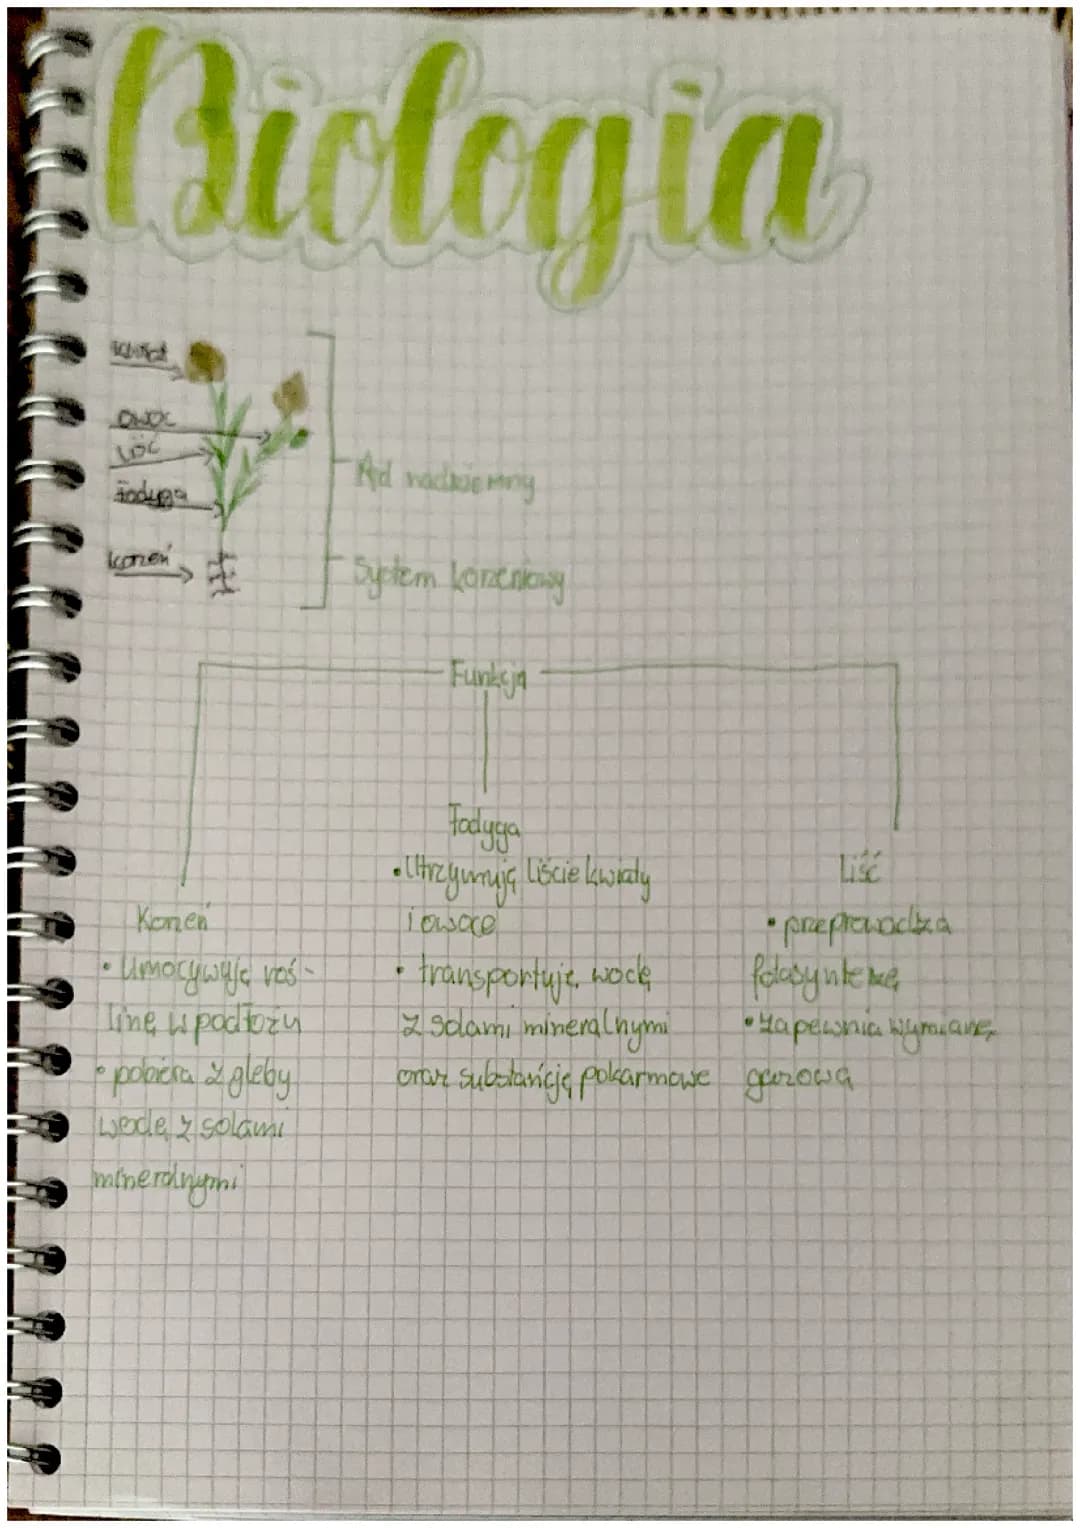 Biologia
kwiat
owoc
liść
Łodyga
korzeń
Pęd nadziemny
System korzeniowy
Funkcja
Łodyga
• Utrzymują liście kwiaty
i owoce
• transportuję wodę
z solami mineralnymi
oraz substancję pokarmowe
Liść
• przeprowadza
fotosyntezę
• zapewnia wymianę
gazową
Korzeń
• Umocywują roś-
linę w podłożu
• pobiera z gleby
wodę z solami
mineralnymi